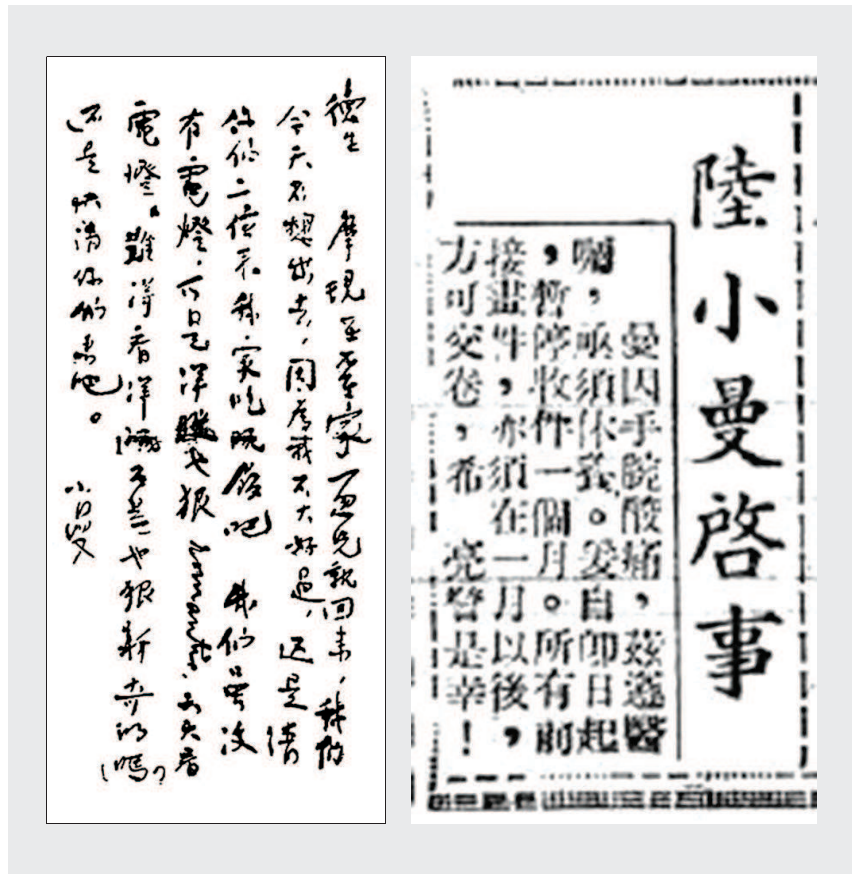 德生 摩現至李家一回兒就回來，我們
今天不想出去，因為我不大好過，还是請
你們二位來我家吃晚飯吧 我們雖沒
有電燈，可是洋也狠 romantic，天天看
電燈，難得看洋不是也狠新奇的嗎？
还是快請你們來吧。
小曼
陸小曼啓事
曼因手腕酸痛，茲遵醫
囑，亟須休養。爰自卽日起
，暫停收件一個月。所有前
接畫件，亦須在一月以後，
方可交卷，希 亮詧是幸！